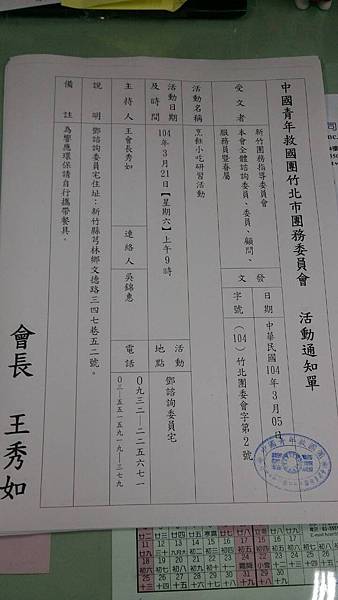 中國青年救國團竹北市團務委員會 活動通知單
受文者
新竹團務指導委員會
本會全體諮詢委員、委員、顧問、
服務員暨眷屬
發文
日期
中華民國104年3月05日
字號
(104)竹北團委會字第2號
活動名稱
烹飪小吃研習活動
活動日期及時間
104年3月21日【星期六】上午9時
活動地點
鄧諮詢委員宅
主持人
王會長秀如
連絡人
吳錦惠
電話
０九三二-二二五六七一
０三-五五一五九一九-三七九
說明
鄧諮詢委員宅住址：新竹縣芎林鄉文德路三四七巷五二號。
備註
為響應環保請自行攜帶餐具。
會長 王秀如